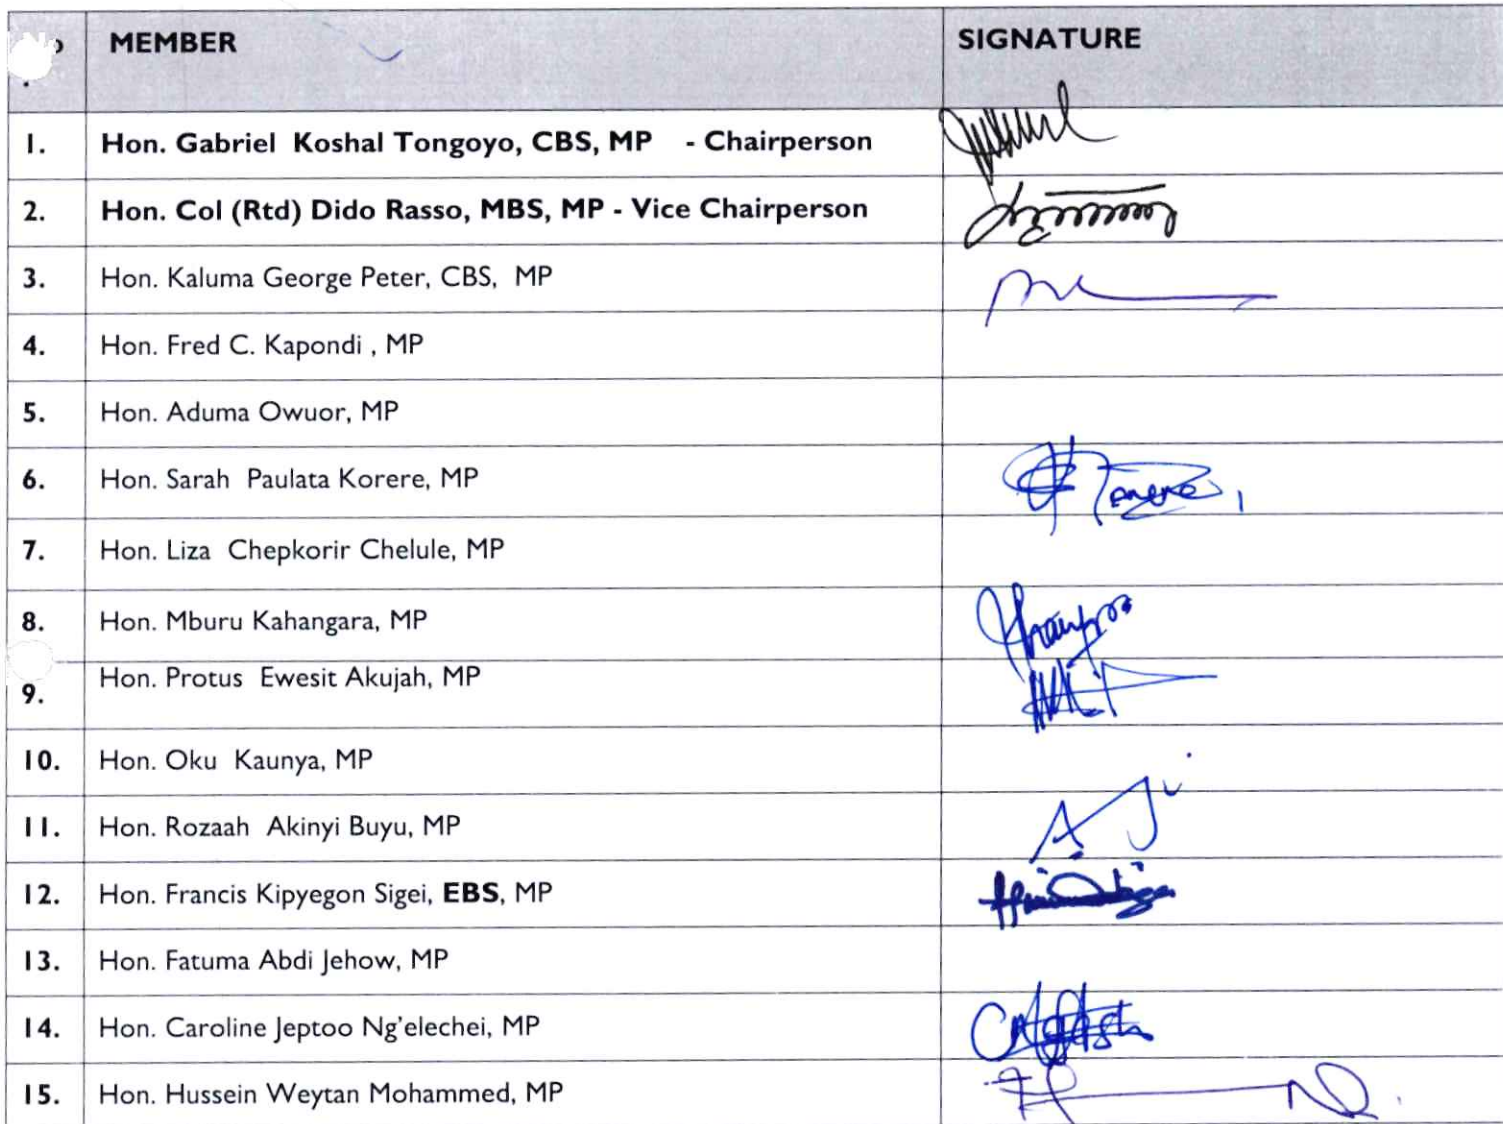 MEMBER SIGNATURE
1. Hon. Gabriel Koshal Tongoyo, CBS, MP - Chairperson
2. Hon. Col (Rtd) Dido Rasso, MBS, MP - Vice Chairperson
3. Hon. Kaluma George Peter, CBS, MP
4. Hon. Fred C. Kapondi , MP
5. Hon. Aduma Owuor, MP
6. Hon. Sarah Paulata Korere, MP
7. Hon. Liza Chepkorir Chelule, MP
8. Hon. Mburu Kahangara, MP
9. Hon. Protus Ewesit Akujah, MP
10. Hon. Oku Kaunya, MP
11. Hon. Rozaah Akinyi Buyu, MP
12. Hon. Francis Kipyegon Sigei, EBS, MP
13. Hon. Fatuma Abdi Jehow, MP
14. Hon. Caroline Jeptoo Ng'elechei, MP
15. Hon. Hussein Weytan Mohammed, MP